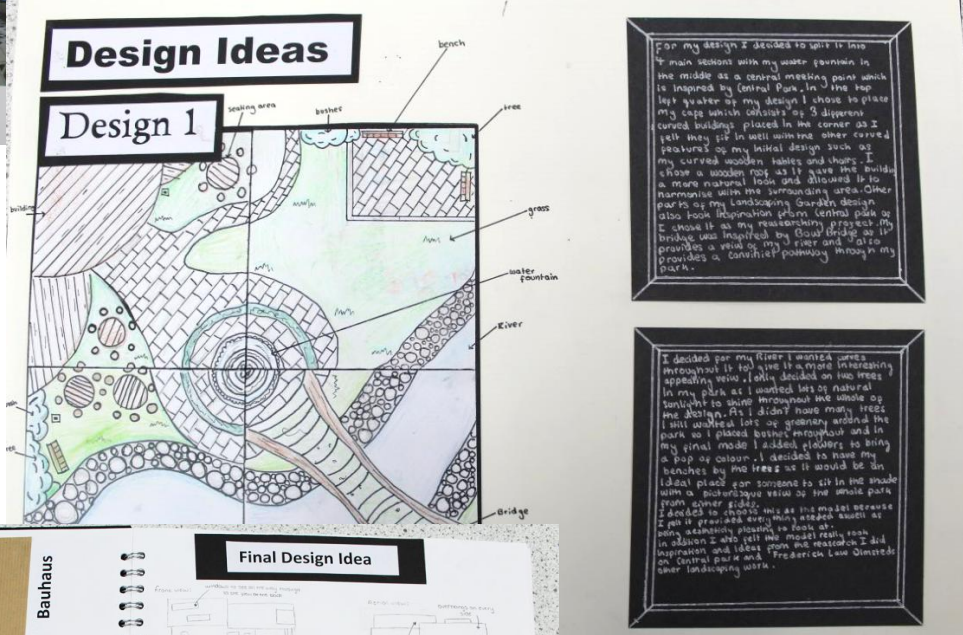 Design Ideas
Design 1
seating area
bushes
bench
tree
building
grass
water
fountain
River
Bridge
For my design I decided to split it into
4 main sections with my water fountain in
the middle as a central meeting point which
is inspired by Central Park. In the top
left quater of my design I chose to place
my cafe which consists of 3 different
curved buildings placed in the corner as I
felt they fit in well with the other curved
features of my initial design such as
my curved wooden tables and chairs. I
chose a wooden roof as it gave the building
a more natural look and allowed it to
harmonise with the surrounding area. Other
parts of my Landscaping Garden design
also took inspiration from Central park as
I chose it as my researching project. My
bridge was inspired by Bow Bridge as it
provides a veiw of my river and also
provides a pathway through my
park.
I decided for my River I wanted curves
throughout it to give it a more interesting
appealing veiw. I only decided on two trees
in my park as I wanted lots of natural
sunlight to shine throughout the whole of
the design. As I didn't have many trees
I still wanted lots of greenery around the
park so I placed bushes throughout and in
my final model I added flowers to bring
a pop of colour. I decided to have my
benches by the trees as it would be an
ideal place for someone to sit in the shade
with a picturesque veiw of the whole park
from either sides.
I decided to choose this as the model because
I felt it provided everything needed aswell as
being aesthetically pleasing to look at.
In addition I also felt the model really took
inspiration and ideas from the reasearch I did
on Central park and Frederick Law Olmsteds
other landscaping work.
Bauhaus
Final Design Idea